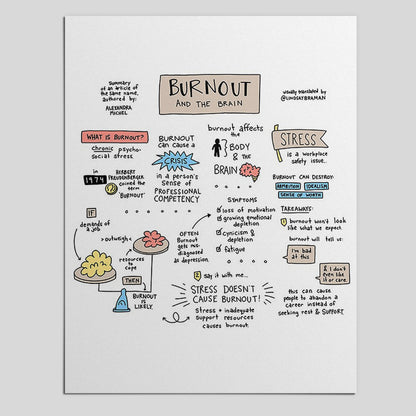 Summary
of an article of
the same name,
authored by:
ALEXANDRA
MICHEL
BURNOUT
AND THE BRAIN
visually translated by
@LINDSAYBRAMAN
WHAT IS BURNOUT?
Chronic psycho-
social stress
in
1974
HERBERT
FREUDENBERGER
coined the
term
"BURNOUT"
IF
demands of
a job
> outweigh <
resources
to cope
THEN
BURNOUT
IS LIKELY.
BURNOUT
can cause a
CRISIS
in a person's
sense of
PROFESSIONAL
COMPETENCY
OFTEN
Burnout
gets mis-
diagnosed
as depression.
burnout affects
the
BODY
& the
BRAIN
SYMPTOMS
loss of motivation
growing emotional
depletion
Cynicism &
depletion
Fatigue
say it with me...
STRESS DOESN'T
CAUSE BURNOUT!
Stress + inadequate
support resources
causes burnout.
STRESS
is a workplace
safety issue.
BURNOUT CAN DESTROY:
AMBITION
IDEALISM
SENSE OF WORTH
TAKEAWAYS:
burnout won't look
like what we expect.
burnout will tell us:
I'm bad
at this
& I don't
even like
it or care.
this can cause
people to abandon a
career instead of
seeking rest & SUPPORT.